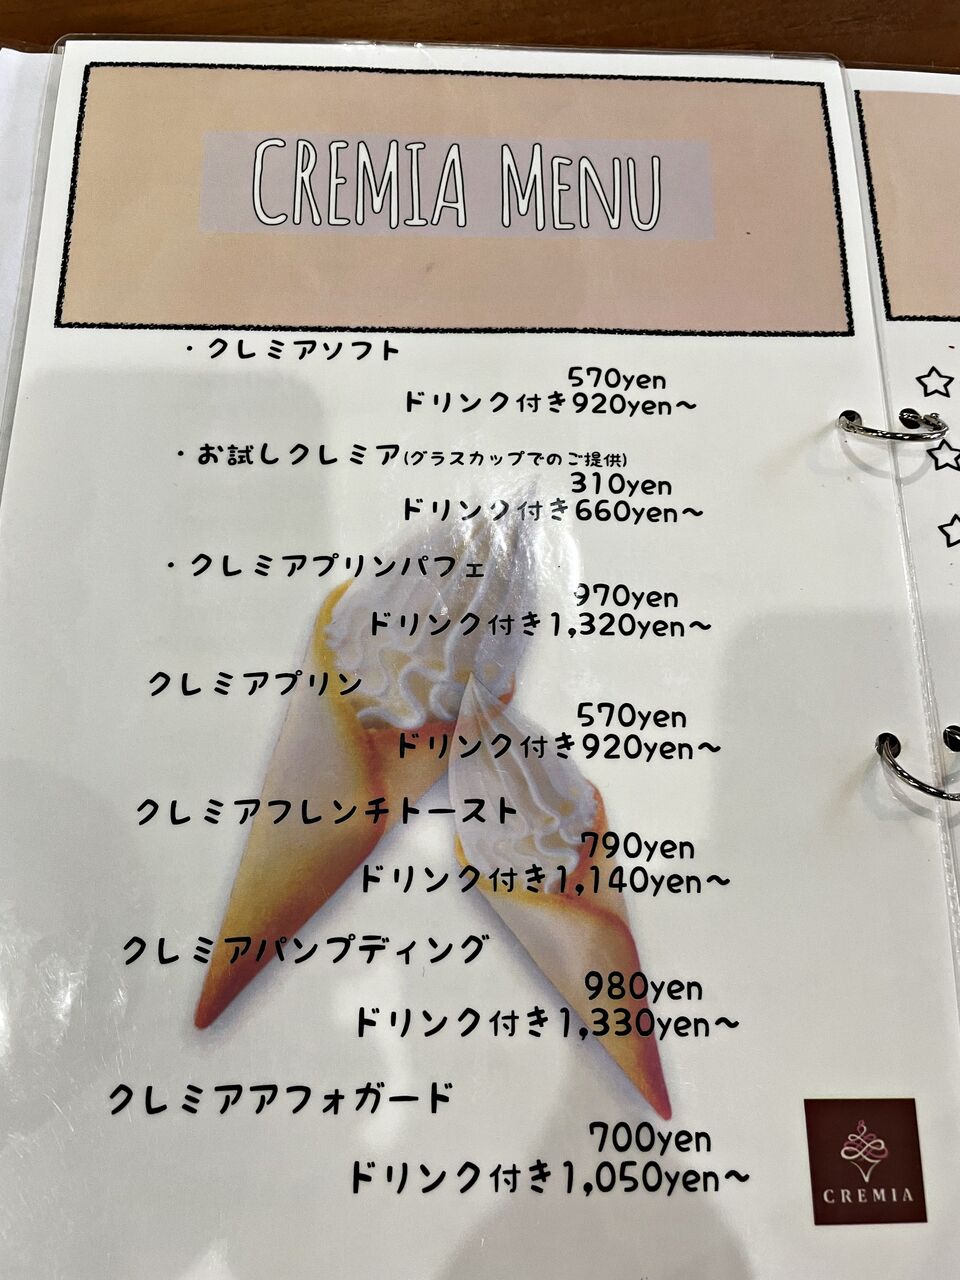 CREMIA MENU
・クレミアソフト
570yen
ドリンク付き920yen～
・お試しクレミア(グラスカップでのご提供)
310yen
ドリンク付き660yen～
・クレミアプリンパフェ
970yen
ドリンク付き1,320yen～
クレミアプリン
570yen
ドリンク付き920yen～
クレミアフレンチトースト
790yen
ドリンク付き1,140yen～
クレミアパンプディング
980yen
ドリンク付き1,330yen～
クレミアアフォガード
700yen
ドリンク付き1,050yen～
CREMIA